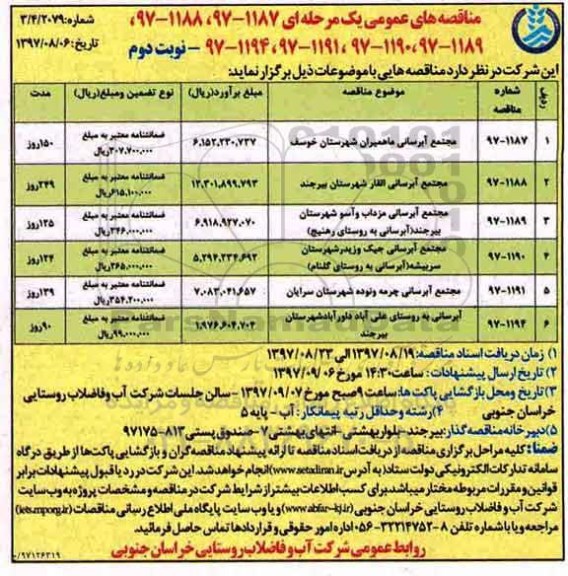 شماره: ۳/۴/۲۰۷۹
تاریخ: ۱۳۹۷/۰۸/۰۶
مناقصه های عمومی یک مرحله ای ۱۱۸۷-۹۷، ۱۱۸۸-۹۷،
۱۱۸۹-۹۷، ۱۱۹۰-۹۷، ۱۱۹۱-۹۷، ۱۱۹۴-۹۷ - نوبت دوم
این شرکت در نظر دارد مناقصه هایی با موضوعات ذیل برگزار نماید:
ردیف شماره مناقصه موضوع مناقصه مبلغ برآورد(ریال) نوع تضمین و مبلغ(ریال) مدت
۱ ۹۷-۱۱۸۷ مجتمع آبرسانی ماهمیران شهرستان خوسف ۶.۱۵۲.۲۳۰.۷۳۷ ضمانتنامه معتبر به مبلغ ۳۰۷.۷۰۰.۰۰۰ریال ۱۵۰روز
۲ ۹۷-۱۱۸۸ مجتمع آبرسانی القار شهرستان بیرجند ۱۲.۳۰۱.۸۹۹.۷۹۳ ضمانتنامه معتبر به مبلغ ۶۱۵.۱۰۰.۰۰۰ریال ۲۴۹روز
۳ ۹۷-۱۱۸۹ مجتمع آبرسانی مزداب وآسو شهرستان بیرجند(آبرسانی به روستای رهنیج) ۶.۹۱۸.۹۲۷.۰۷۰ ضمانتنامه معتبر به مبلغ ۳۴۶.۰۰۰.۰۰۰ریال ۱۳۵روز
۴ ۹۷-۱۱۹۰ مجتمع آبرسانی جیک وزیدرشهرستان سربیشه(آبرسانی به روستای گلنام) ۵.۲۹۴.۲۳۴.۶۹۲ ضمانتنامه معتبر به مبلغ ۲۶۵.۰۰۰.۰۰۰ریال ۱۲۴روز
۵ ۹۷-۱۱۹۱ مجتمع آبرسانی چرمه ونوده شهرستان سرایان ۷.۰۸۳.۰۴۱.۶۵۷ ضمانتنامه معتبر به مبلغ ۳۵۴.۲۰۰.۰۰۰ریال ۱۳۹روز
۶ ۹۷-۱۱۹۴ آبرسانی به روستای علی آباد داورآبادشهرستان بیرجند ۱.۹۷۶.۶۰۴.۷۰۲ ضمانتنامه معتبر به مبلغ ۹۹.۰۰۰.۰۰۰ریال ۹۰روز
۱) زمان دریافت اسناد مناقصه: ۱۳۹۷/۰۸/۱۹ الی ۱۳۹۷/۰۸/۲۳
۲) تاریخ ارسال پیشنهادات: ساعت ۱۴:۳۰ مورخ ۱۳۹۷/۰۹/۰۶
۳) تاریخ ومحل بازگشایی پاکت ها: ساعت ۹صبح مورخ ۱۳۹۷/۰۹/۰۷ - سالن جلسات شرکت آب وفاضلاب روستایی
خراسان جنوبی ۴) رشته وحداقل رتبه پیمانکار: آب - پایه ۵
۵) دبیرخانه مناقصه گذار: بیرجند-بلوار بهشتی-انتهای بهشتی۷-صندوق پستی ۸۱۳-۹۷۱۷۵
ضمناً: کلیه مراحل برگزاری مناقصه از دریافت اسناد مناقصه تا ارائه پیشنهاد مناقصه گران و بازگشایی پاکت ها از طریق درگاه
سامانه تدارکات الکترونیکی دولت ستاد (به آدرس www.setadiran.ir) انجام خواهد شد. این شرکت در رد یا قبول پیشنهادات برابر
قوانین و مقررات مربوطه مختار میباشد.برای کسب اطلاعات بیشتر از شرایط شرکت در مناقصه و مشخصات پروژه به وب سایت
شرکت آب و فاضلاب روستایی خراسان جنوبی (www.abfar-kj.ir) و یا وب سایت پایگاه ملی اطلاع رسانی مناقصات (iets.mporg.ir)
مراجعه و یا با شماره تلفن ۸-۳۲۲۱۴۷۵۲-۰۵۶اداره امور حقوقی و قراردادها تماس حاصل فرمائید.
روابط عمومی شرکت آب و فاضلاب روستایی خراسان جنوبی